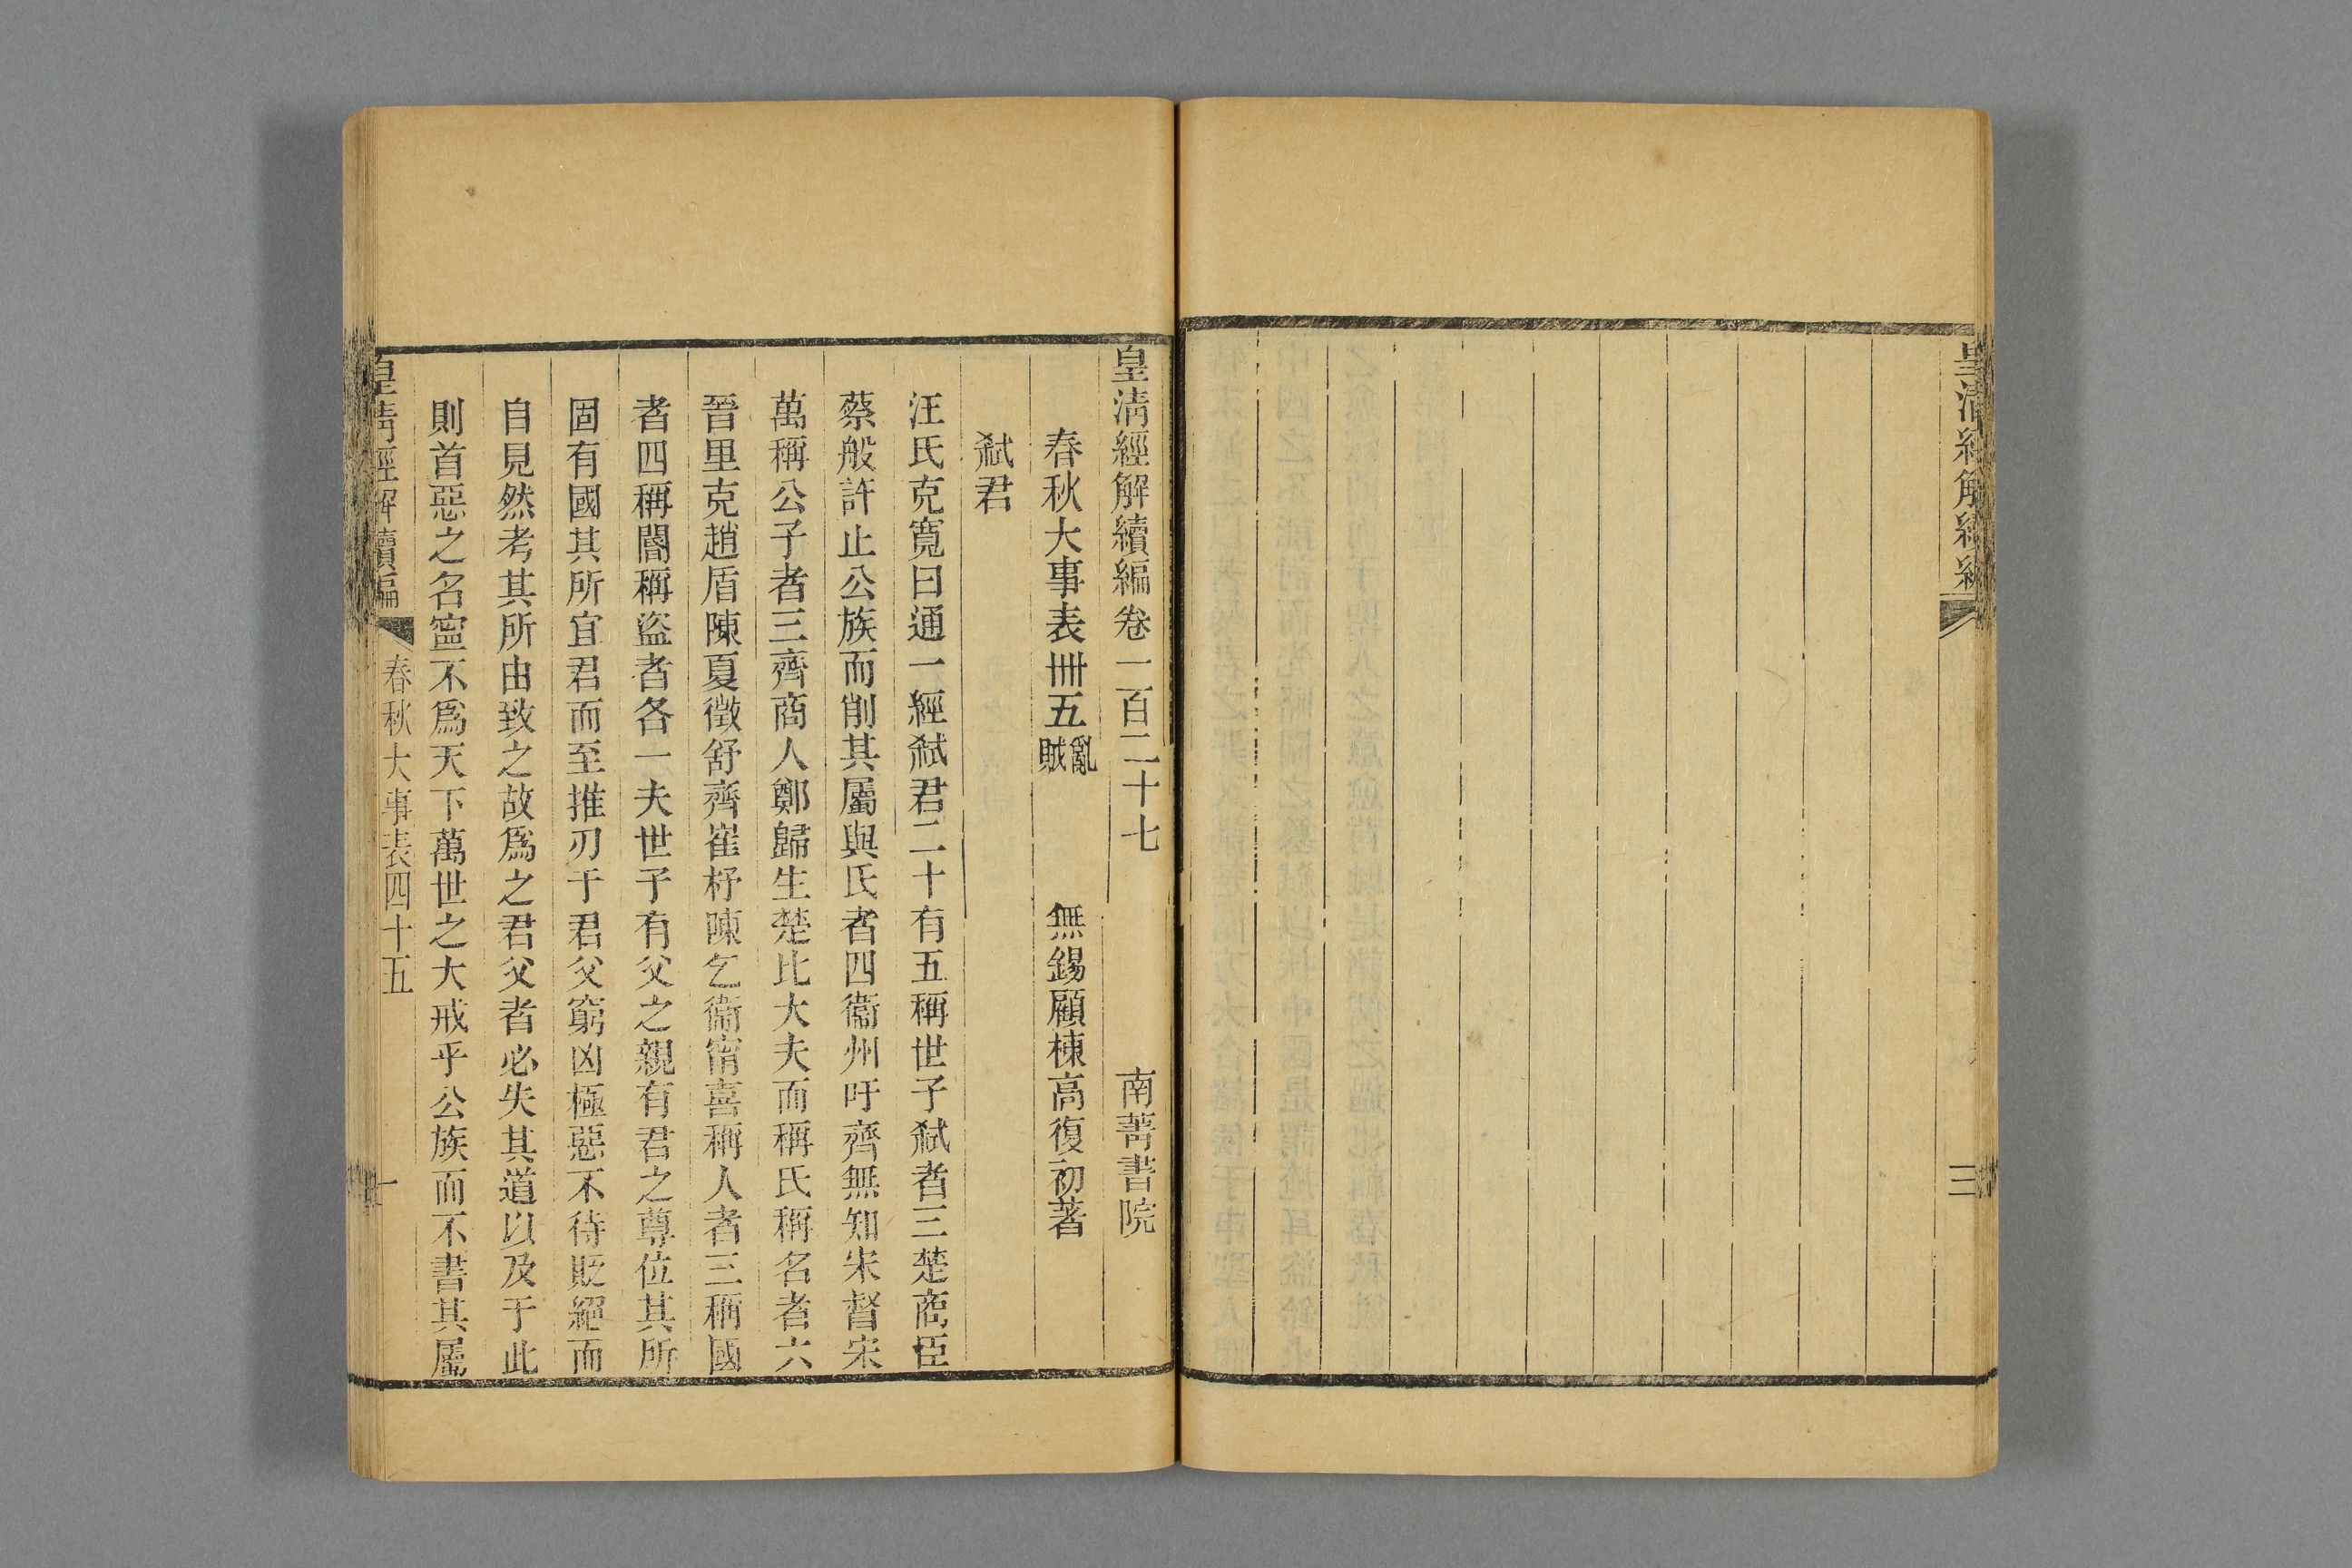 皇清經解續編
三
皇清經解續編卷一百二十七　南菁書院
春秋大事表卌五亂賊　無錫顧棟高復初著
弑君
汪氏克寬曰通一經弑君二十有五稱世子弑者三楚商臣
蔡般許止公族而削其屬與氏者四衞州吁齊無知宋督宋
萬稱公子者三齊商人鄭歸生楚比大夫而稱氏稱名者六
晉里克趙盾陳夏徵舒齊崔杼陳乞衞甯喜稱人者三稱國
者四稱閽稱盜者各一夫世子有父之親有君之尊位其所
固有國其所宜君而至推刃于君父窮凶極惡不待貶絕而
自見然考其所由致之故爲之君父者必失其道以及于此
則首惡之名寧不爲天下萬世之大戒乎公族而不書其屬
皇清經解續編　春秋大事表四十五　一